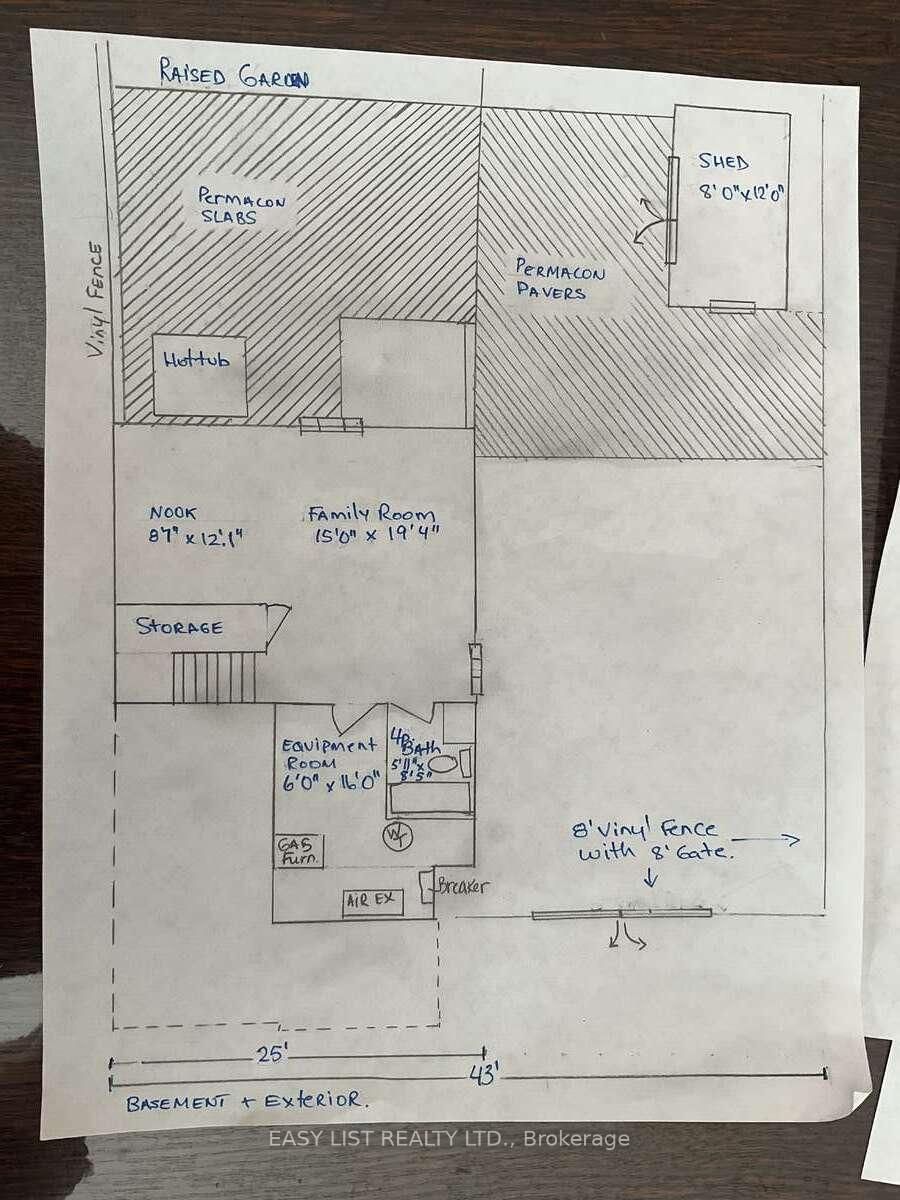 RAISED GARDEN
PERMACON
SLABS
SHED
8'0" x 12'0"
Vinyl FENCE
PERMACON
PAVERS
Hottub
NOOK
8'7" x 12'.1"
Family Room
15'0" x 19'4"
STORAGE
EQUIPMENT
ROOM
6'0" x 16'0"
4p.
BATH
5'11" x
8'5"
GAS
Furn.
WT
AIR EX
Breaker
8' Vinyl Fence
with 8' Gate.
25'
43'
BASEMENT + EXTERIOR.
EASY LIST REALTY LTD., Brokerage